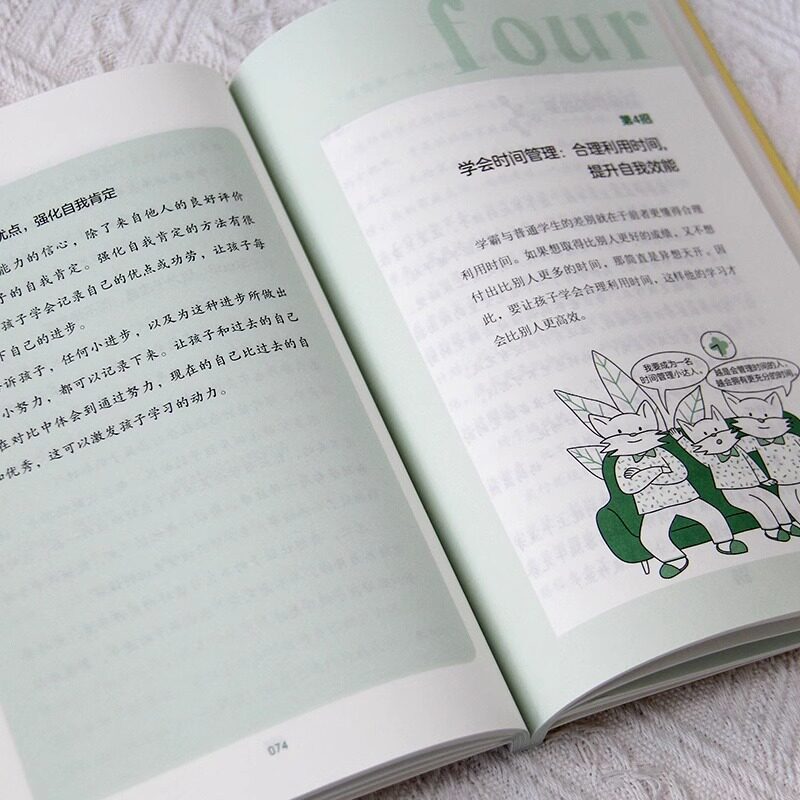 优点，强化自我肯定
能力的信心，除了来自他人的良好评价
子的自我肯定。强化自我肯定的方法有很
孩子学会记录自己的优点或功劳，让孩子每
下自己的进步。
诉孩子，任何小进步，以及为这种进步所做出
小努力，都可以记录下来。让孩子和过去的自己
在对比中体会到通过努力，现在的自己比过去的自
优秀，这可以激发孩子学习的动力。
074
four
第4招
学会时间管理：合理利用时间，
提升自我效能
学霸与普通学生的差别就在于前者更懂得合理
利用时间。如果想取得比别人更好的成绩，又不想
付出比别人更多的时间，那简直是异想天开。因
此，要让孩子学会合理利用时间，这样他的学习才
会比别人更高效。
我要成为一名
时间管理小达人。
越是会管理时间的人，
越会拥有更充分的时间